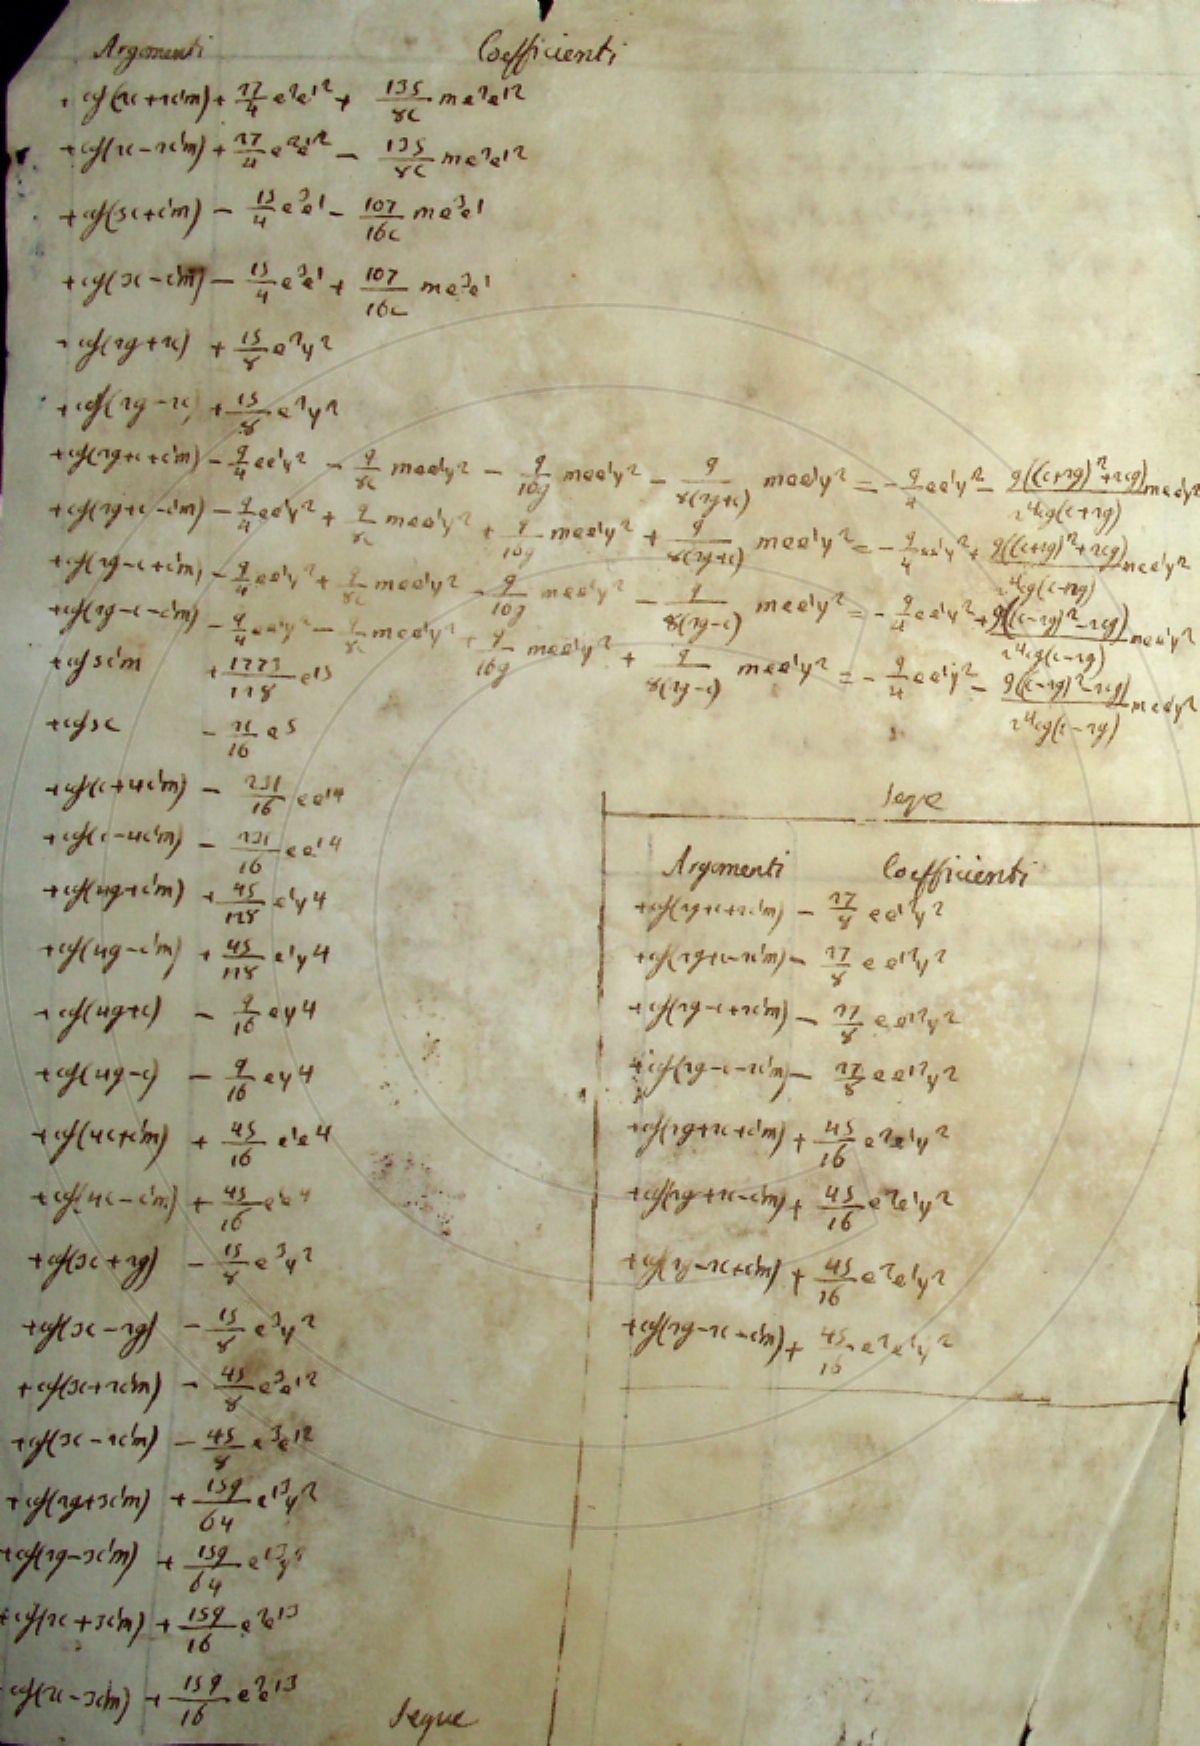 Argomenti Coefficienti
+cos(2c+2c'm) + 27/4 e²e'² + 135/8c me²e'²
+cos(2c−2c'm) + 27/4 e²e'² − 135/8c me²e'²
+cos(3c+c'm) − 15/4 e³e' − 107/16c me³e'
+cos(3c−c'm) − 15/4 e³e' + 107/16c me³e'
+cos(2g+2c) + 15/8 e²γ²
+cos(2g−2c) + 15/8 e²γ²
+cos(2g+c+c'm) − 9/4 ee'γ² − 9/8c mee'γ² − 9/16g mee'γ² − 9/8(2g+c) mee'γ² = − 9/4 ee'γ² − 9((c+2g)²+2cg)/2⁴cg(c+2g) mee'γ²
+cos(2g+c−c'm) − 9/4 ee'γ² + 9/8c mee'γ² + 9/16g mee'γ² + 9/8(2g+c) mee'γ² = − 9/4 ee'γ² + 9((c+2g)²+2cg)/2⁴cg(c+2g) mee'γ²
+cos(2g−c+c'm) − 9/4 ee'γ² + 9/8c mee'γ² − 9/16g mee'γ² − 9/8(2g−c) mee'γ² = − 9/4 ee'γ² + 9((c−2g)²−2cg)/2⁴cg(c−2g) mee'γ²
+cos(2g−c−c'm) − 9/4 ee'γ² − 9/8c mee'γ² + 9/16g mee'γ² + 9/8(2g−c) mee'γ² = − 9/4 ee'γ² − 9((c−2g)²−2cg)/2⁴cg(c−2g) mee'γ²
+cos5c'm + 1773/128 e'⁵
+cos5c − 21/16 e⁵
+cos(c+4c'm) − 231/16 ee'⁴
+cos(c−4c'm) − 231/16 ee'⁴
+cos(4g+c'm) + 45/128 e'γ⁴
+cos(4g−c'm) + 45/128 e'γ⁴
+cos(4g+c) − 9/16 eγ⁴
+cos(4g−c) − 9/16 eγ⁴
+cos(4c+c'm) + 45/16 e'e⁴
+cos(4c−c'm) + 45/16 e'e⁴
+cos(3c+2g) − 15/8 e³γ²
+cos(3c−2g) − 15/8 e³γ²
+cos(3c+2c'm) − 45/8 e³e'²
+cos(3c−2c'm) − 45/8 e³e'²
+cos(2g+3c'm) + 159/64 e'³γ²
+cos(2g−3c'm) + 159/64 e'³γ²
+cos(2c+3c'm) + 159/16 e²e'³
cos(2c−3c'm) + 159/16 e²e'³
Segue
Segue
Argomenti Coefficienti
+cos(2g+c+2c'm) − 27/8 ee'²γ²
+cos(2g+c−2c'm) − 27/8 ee'²γ²
+cos(2g−c+2c'm) − 27/8 ee'²γ²
+cos(2g−c−2c'm) − 27/8 ee'²γ²
+cos(2g+2c+c'm) + 45/16 e²e'γ²
+cos(2g+2c−c'm) + 45/16 e²e'γ²
+cos(2g−2c+c'm) + 45/16 e²e'γ²
+cos(2g−2c−c'm) + 45/16 e²e'γ²